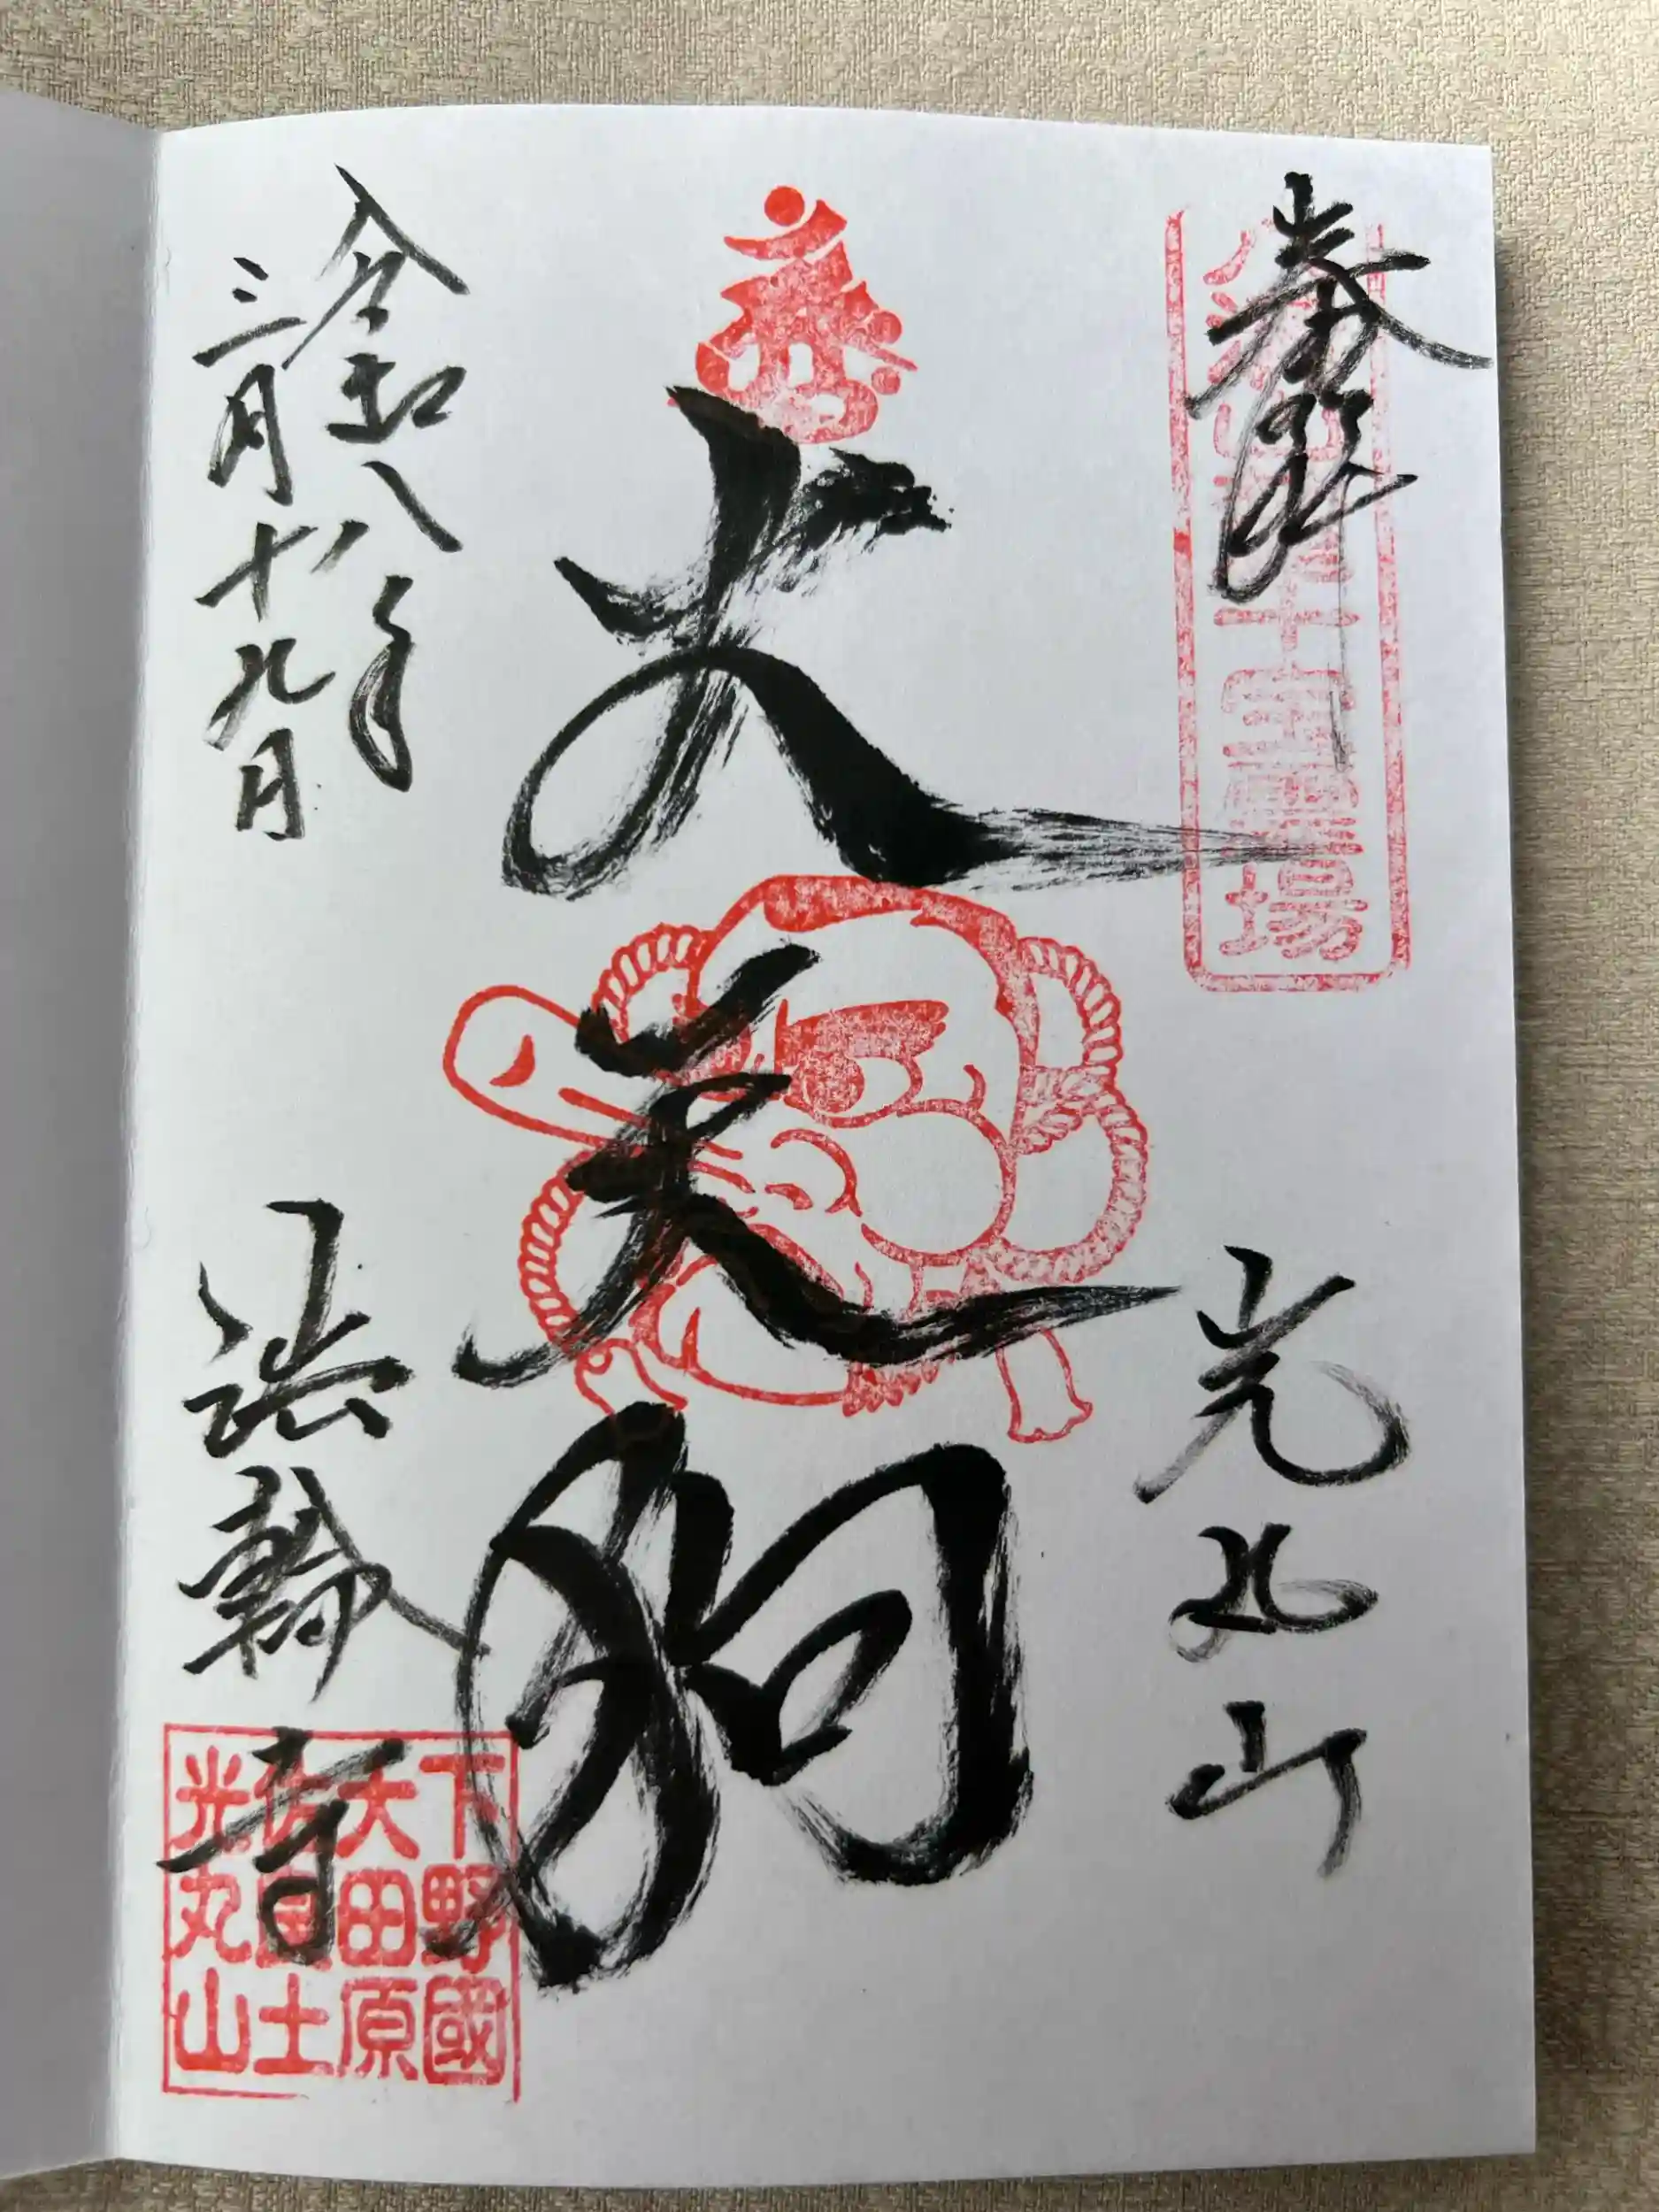 奉拝
光丸山
大天狗
令和八年
三月十九日
法輪寺
下野國
大田原
佐良土
光丸山